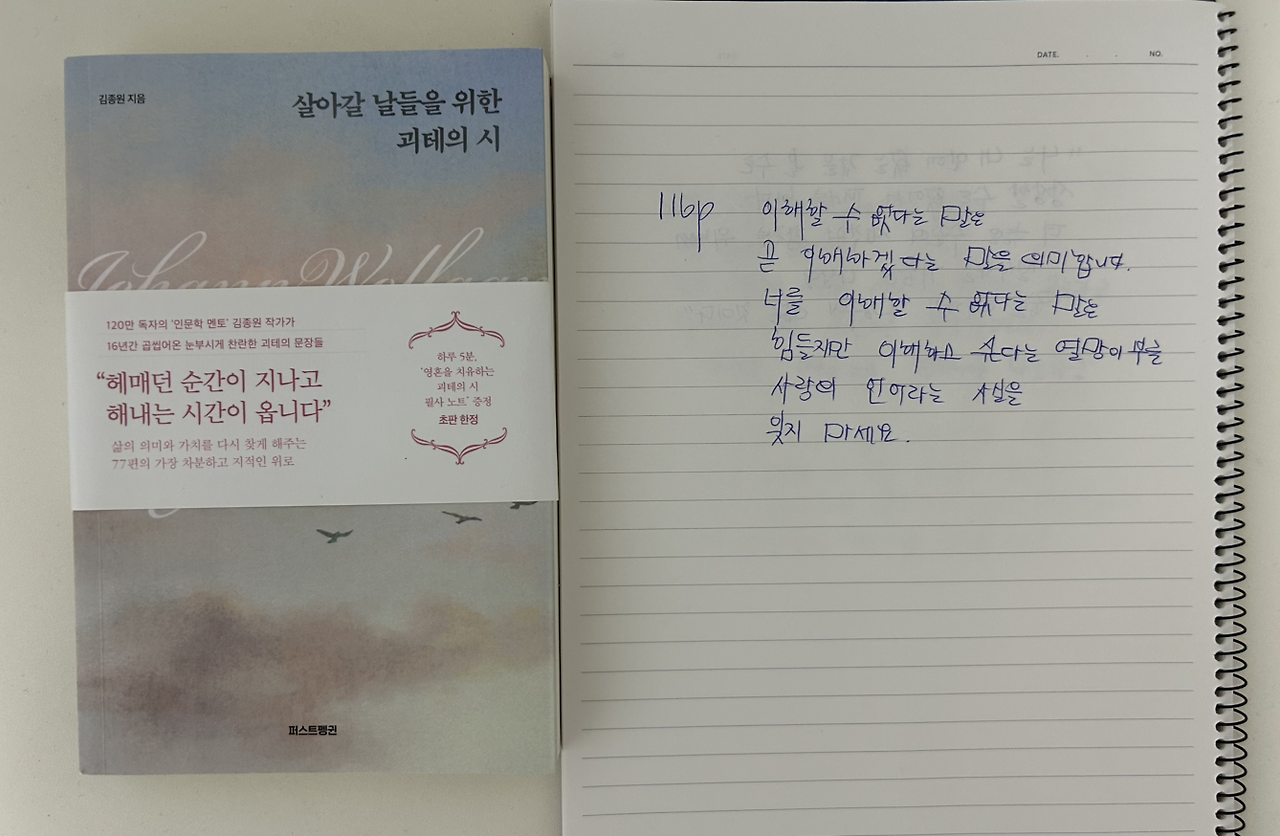 김종원 지음
살아갈 날들을 위한
괴테의 시
Johann Wolfgang
120만 독자의 '인문학 멘토' 김종원 작가가
16년간 곱씹어온 눈부시게 찬란한 괴테의 문장들
“헤매던 순간이 지나고
해내는 시간이 옵니다”
삶의 의미와 가치를 다시 찾게 해주는
77편의 가장 차분하고 지적인 위로
하루 5분,
'영혼을 치유하는
괴테의 시
필사 노트' 증정
초판 한정
퍼스트펭귄
DATE. . . NO.
116p 이해할 수 없다는 말은
곧 이해하겠다는 말을 의미합니다.
너를 이해할 수 없다는 말은
힘들지만 이해하고 싶다는 열망이 부를
사랑의 언어라는 사실을
잊지 마세요.